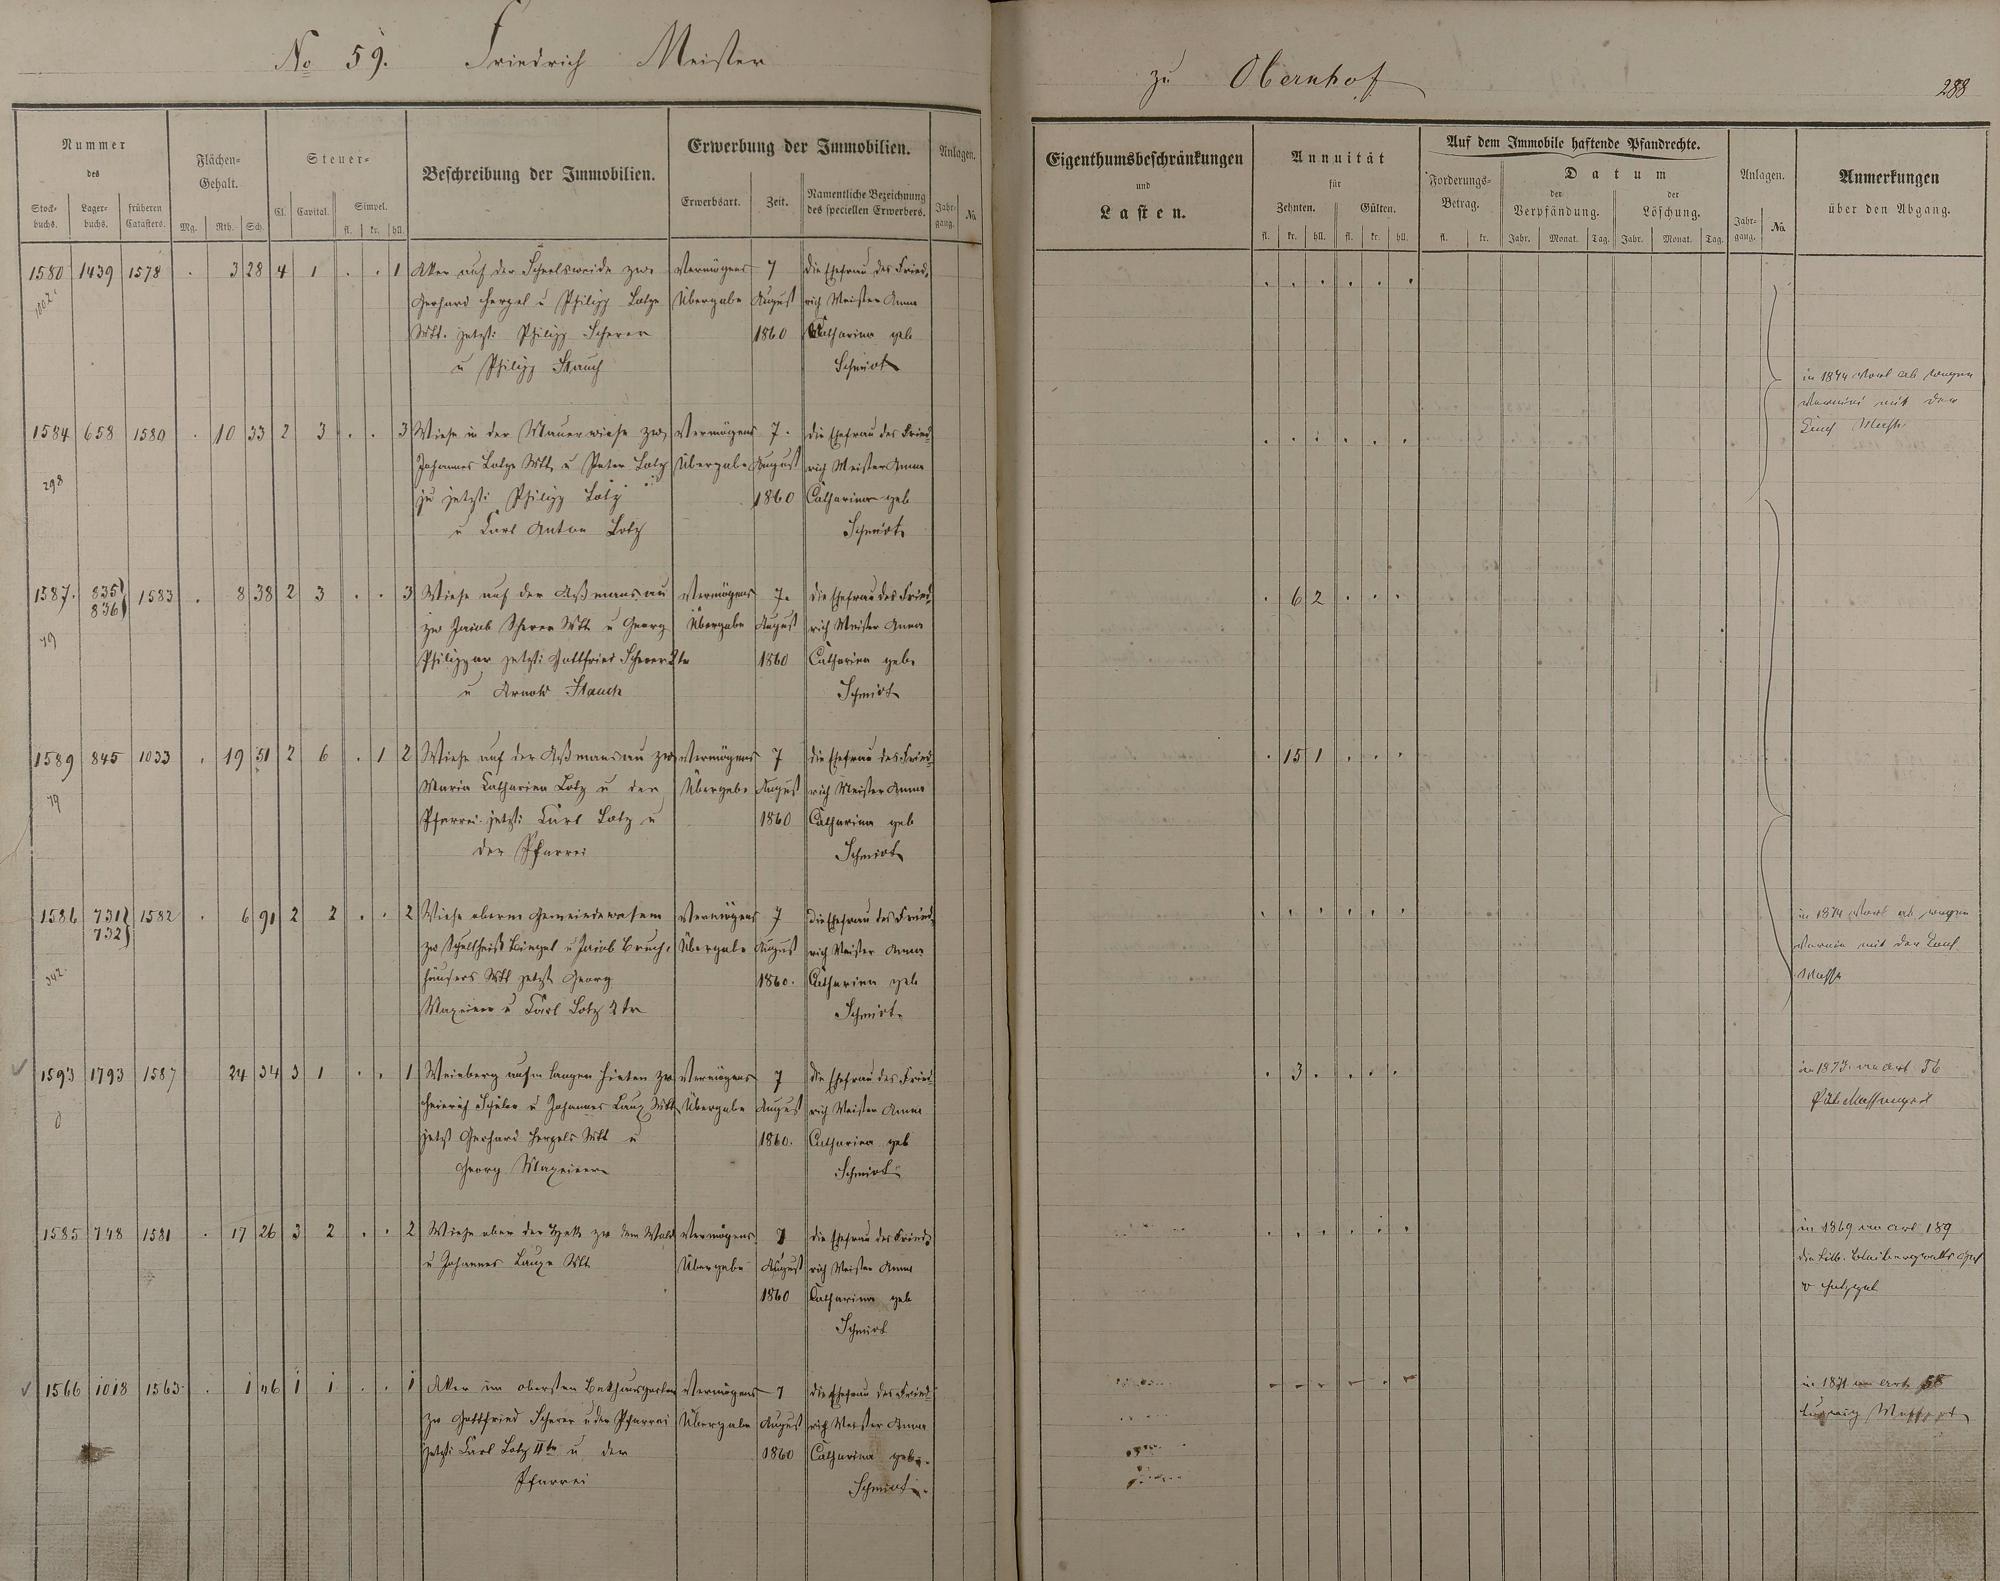 No 59. Friedrich Meister
zu Obernhof
288
Nummer
des
Stock-
buchs.
Lager-
buchs.
früheren
Catasters.
Flächen-
Gehalt.
Mg. Rth. Sch.
Steuer-
Cl. Capital.
Simpel.
fl. kr. hll.
Beschreibung der Immobilien.
Erwerbung der Immobilien.
Erwerbsart. Zeit.
Namentliche Bezeichnung
des speciellen Erwerbers.
Anlagen.
Jahr-
gang.
No.
Eigenthumsbeschränkungen
und
Lasten.
Annuität
für
Zehnten. Gülten.
fl. kr. hll. fl. kr. hll.
Auf dem Immobile haftende Pfandrechte.
Forderungs-
Betrag.
fl. kr.
Datum
der
Verpfändung.
der
Löschung.
Jahr. Monat. Tag. Jahr. Monat. Tag.
Anlagen.
Jahr-
gang.
No.
Anmerkungen
über den Abgang.
1580 1439 1578 . 3 28 4 1 . . 1 Aker auf der Scheelsweide zw. Vermögens 7 die Ehefrau des Fried-
Gerhard Hergel u Philipp Lotze Übergabe August rich Meister Anna
Wtt. jetzt: Philipp Scherer 1860 Catharina geb
u Philipp Stauch Schmidt
in 1874 ab wegen
mit der
1584 658 1580 . 10 33 2 3 . . 3 Wiese in der Mauerwiese zw. Vermögens 7. die Ehefrau des Fried-
298
Johannes Lotze Wtt. u Peter Lotz Übergabe August rich Meister Anna
jetzt: Philipp Lotz 1860 Catharina geb
u Carl Anton Lotz Schmidt
1587. 835 836 1583 . 8 38 2 3 . . 3 Wiese auf der Aßmansau Vermögens 7. die Ehefrau des Fried-
. 6 2 . . .
79
zw Jacob Scherer Wtt u Georg Übergabe August rich Meister Anna
jetzt: Gottfried Scherer 2tr 1860 Catharina geb.
u Arnold Stauch Schmidt
1589 845 1033 . 19 51 2 6 . 1 2 Wiese auf der Aßmansau zw Vermögens 7 die Ehefrau des Fried-
. 15 1 . . .
79
Maria Catharina Lotz u der Übergabe August rich Meister Anna
Pfarrei. jetzt: Carl Lotz u 1860 Catharina geb
der Pfarrei Schmidt
1586 731 732 1582 . 6 91 2 2 . . 2 Wiese oberm Gemeindewasem Vermögens 7 die Ehefrau des Fried-
342.
zw Schultheiß u Jacob Bruch- Übergabe August rich Meister Anna
häusers Wtt jetzt Georg 1860. Catharina geb
Maxeiner u Carl Lotz 2tr Schmidt.
in 1874 ab wegen
mit der
Masse
1593 1793 1587 24 34 3 1 . . 1 Weinberg aufm langen hinten zw Vermögens 7 die Ehefrau des Fried-
. 3 . . . .
Heinrich Schuler u Johannes Laux Wtt Übergabe August rich Meister Anna
jetzt Gerhard Hergels Wtt u 1860. Catharina geb
Georg Maxeiner Schmidt
in 1873 an Art 56
1585 748 1581 . 17 26 3 2 . . 2 Wiese ober der Heck zw dem Wald Vermögens 7 die Ehefrau des Fried-
u Johannes Wtt Übergabe August rich Meister Anna
1860 Catharina geb
Schmidt
in 1869 an Art 189
1566 1018 1563 . 1 46 1 1 . . 1 Aker im obersten Vermögens 7 die Ehefrau des Fried-
zw Gottfried Scherer u der Pfarrei Übergabe August rich Meister Anna
jetzt: Carl Lotz IItr u der 1860 Catharina geb.
Pfarrei Schmidt.
in 1871 an Art 58